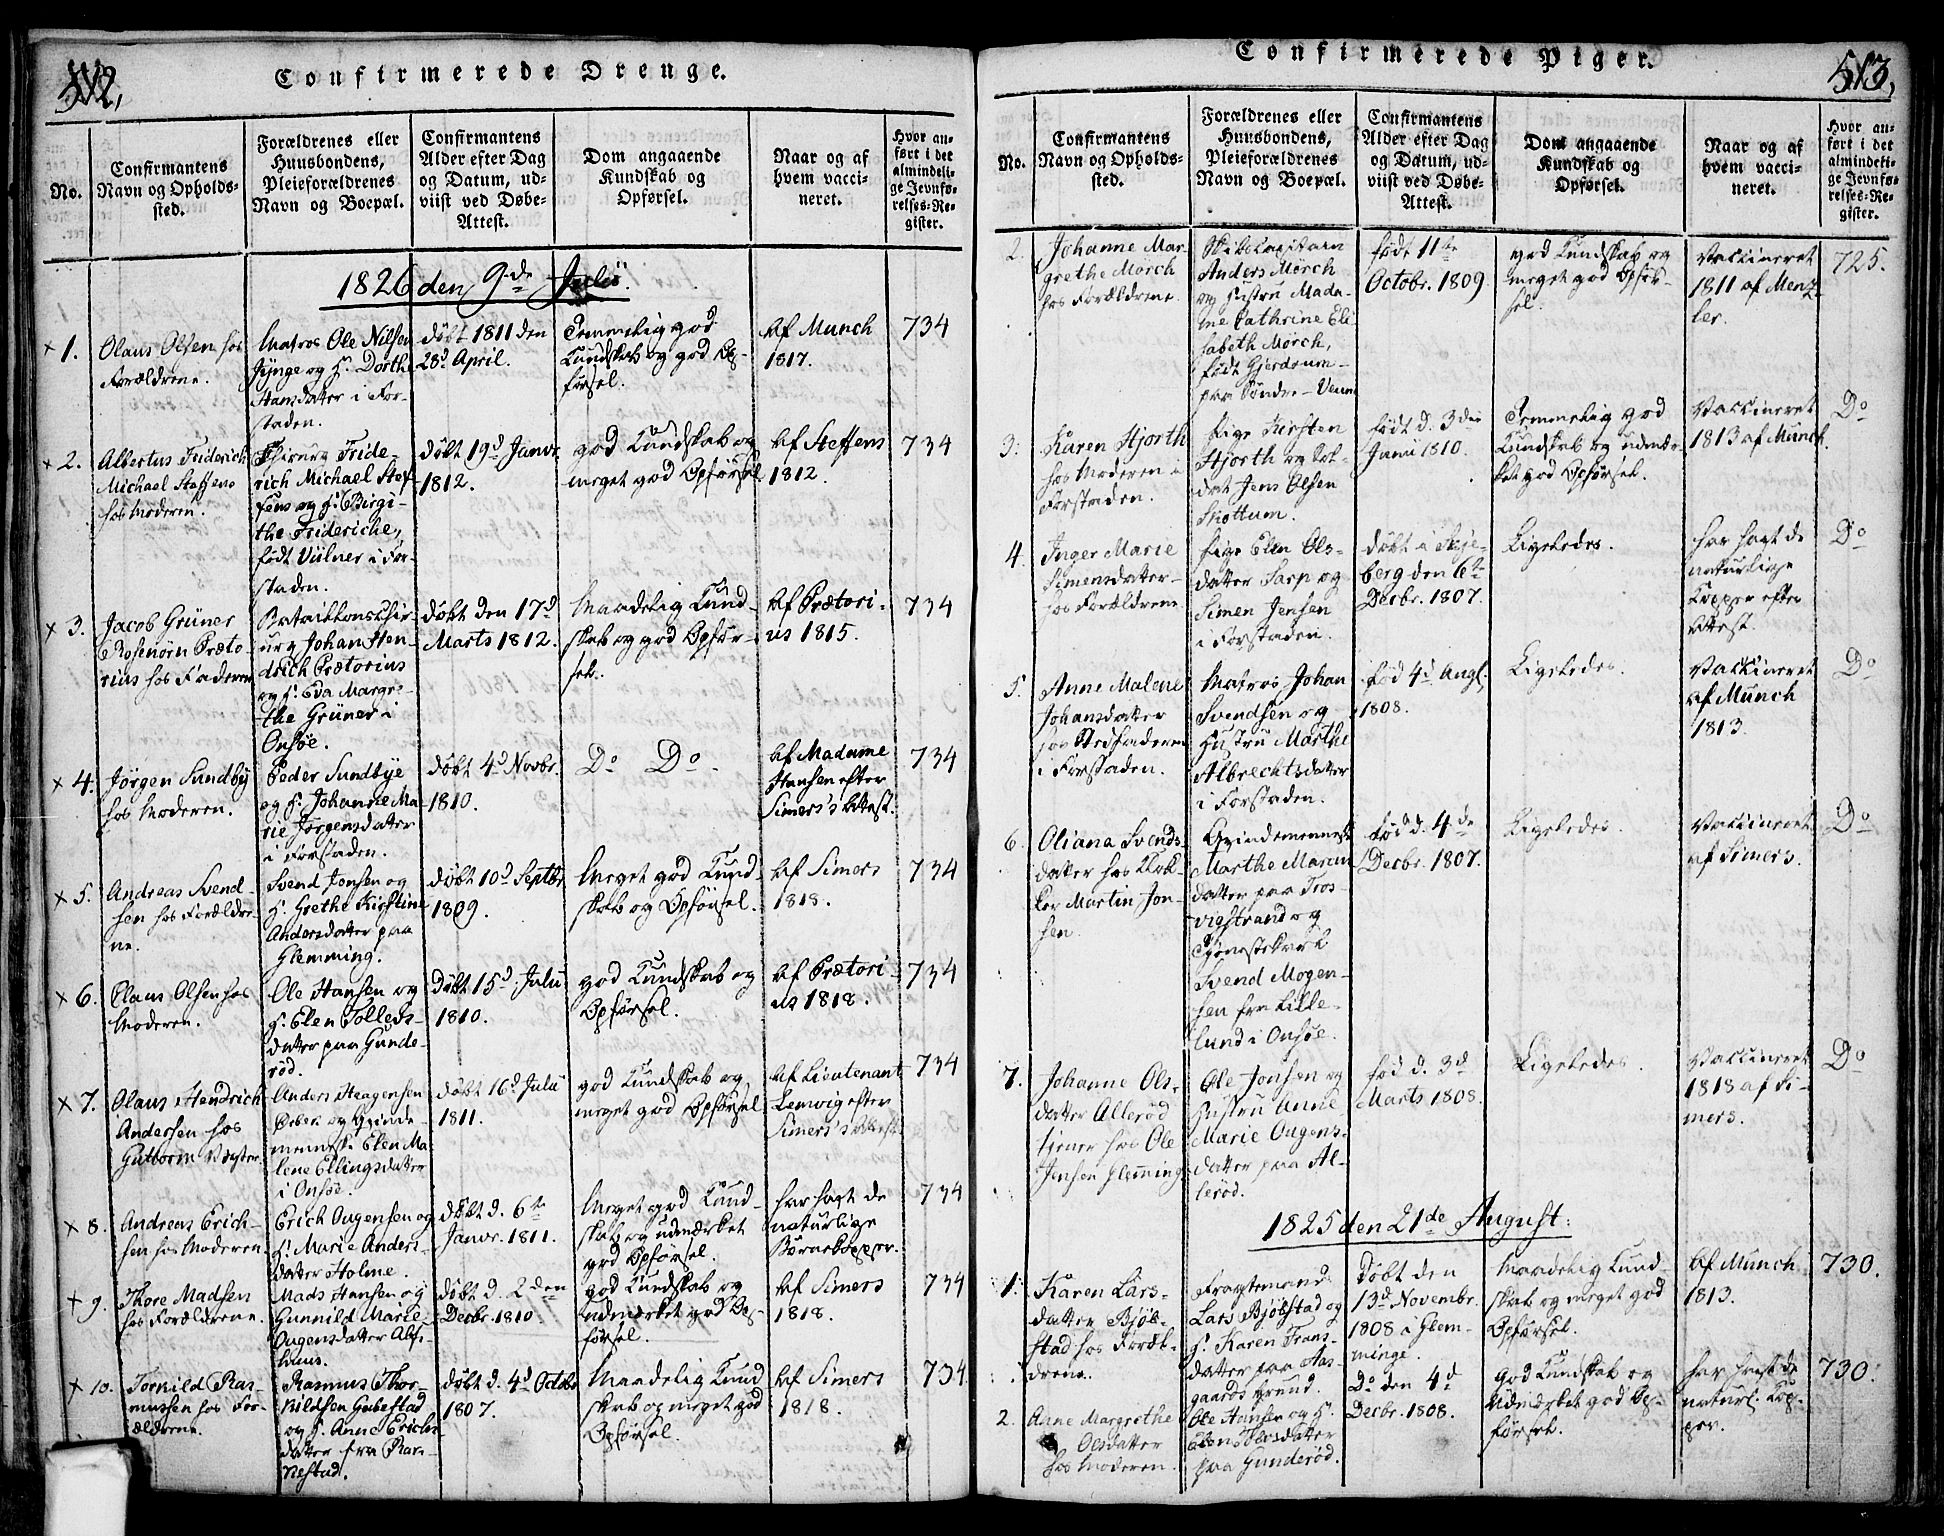 512,
Confirmerede Drenge.
No.
Confirmantens
Navn og Opholds-
sted.
Forældrenes eller
Huusbondens,
Pleieforældrenes
Navn og Boepæl.
Confirmantens
Alder efter Dag
og Datum, ud-
viist ved Døbe-
Attest.
Dom angaaende
Kundskab og
Opførsel.
Naar og af
hvem vacci-
neret.
Hvor an-
ført i det
almindeli-
ge Jevnfø-
relses-Re-
gister.
1826 den 9de Julii.
x 1.
Olaus Olsen hos
Forældrene.
Matros Ole Nilsen
og H. Dorthe
Hansdatter i For-
staden.
døbt 1811 den
28d April.
Temmelig god
Kundskab og god Op-
førsel.
Af Munch
1817.
734
x 2.
Albertus Friderich
Michael Steffens
hos Moderen.
Chirurg Fride-
rich Michael Stef-
fens og H. Birgi-
the Frideriche,
født Vülner i For-
staden.
døbt 19d Janvr.
1812.
god Kundskab og
meget god Opførsel
Af Steffens
1812.
734
x 3.
Jacob Grüner
Rosenörn Præto-
rius hos Faderen
Bataillonschir-
urg Johan Hen-
drich Prætorius
og H. Eva Margre-
the Grüner i
Onsøe.
døbt den 17d
Marts 1812.
Maadelig Kund-
skab og god Opfør-
sel.
Af Prætori-
us 1815.
734
x 4.
Jörgen Sundbÿ
hos Moderen.
Peder Sundbye
og H. Johanne Ma-
rie Jörgensdatter
i Forstaden.
døbt 4d Novbr.
1810.
Do Do
Af Madame
Hansen efter
Simers's Attest.
734
x 5.
Andreas Svend-
sen hos Forældre-
ne.
Svend Jonsen og
H. Grethe Kirstine
Andersdatter paa
Glemming.
døbt 10d Septbr.
1809.
Meget god Kund-
skab og Opførsel.
Af Simers
1818.
734
x 6.
Claus Olsen hos
Moderen.
Ole Hansen og
H. Elen Tollefs-
datter paa Gunde-
rød.
Døbt 15d Julii
1810.
god Kundskab og
Opførsel.
Af Prætori-
us 1818.
734
x 7.
Olaus Hendrich
Andersen hos
Guttorm
Anders Haagensen
og Qvinde-
menneske Elen Ma-
lene Ellingsdatter
i Onsøe.
døbt 16d Julii
1811.
god Kundskab og
meget god Opførsel
Af Lieutenant
Lemvig efter
Simers's Attest
734
x 8.
Andreas Erich-
sen hos Moderen.
Erich Ougensen og
H. Marie Anders-
datter Holme.
døbt d. 6te
Janvr. 1811.
Meget god Kund-
skab og udmærket
god Opførsel.
har havt de
naturlige
Børnekopper.
734
x 9.
Thore Madsen
hos Forældrene.
Mads Hansen og
Gunnild Marie
Ougensdatter
døbt d. 2den
Decbr. 1810.
god Kundskab og
udmærket god Op-
førsel.
Af Simers
1818.
734
x 10.
Torkild Ras-
mussen hos For-
ældrene.
Rasmus Thor-
kildsen Gubestad
og H. Anne Erichs-
datter fra Ram-
nestad.
døbt d. 4d Octobr
1807.
Maadelig Kund
skab og meget god
Opførsel.
Af Simers
1818.
734.
Confirmerede Piger.
513,
No.
Confirmantens
Navn og Opholds-
sted.
Forældrenes eller
Huusbondens,
Pleieforældrenes
Navn og Boepæl.
Confirmantens
Alder efter Dag
og Datum, ud-
viist ved Døbe-
Attest.
Dom angaaende
Kundskab og
Opførsel.
Naar og af
hvem vacci-
neret.
Hvor an-
ført i det
almindeli-
ge Jevnfø-
relses-Re-
gister.
2.
Johanne Mar-
grethe Mörch
hos Forældrene.
Skibscapitain
Anders Mörch
og Hustru Mada-
me Cathrine Eli
sabeth Mörch,
født Gjerdrum
paa Søndre
født 11te
Octobr. 1809
god Kundskab og
meget god Opfør-
sel.
Vaccineret
1811 af Menz-
ler.
725.
3.
Karen Hjorth
hos Moderen i
Forstaden.
Pige Kirsten
Hjorth og Sol-
dat Jens Olsen
Skottum.
født d. 3die
Junii 1810.
Temmelig god
Kundskab og udmær-
ket god Opførsel.
Vaccineret
1813 af Munch.
Do
4.
Inger Marie
Simensdatter
hos Forældrene
Pige Elen Ols-
datter Sarp og
Simen Jensen
i Forstaden.
døbt i Skje-
berg den 6te
Decbr. 1807.
Ligeledes.
har havt de
naturlige
Kopper efter
Attest.
Do
5.
Anne Malene
Johansdatter
hos Stedfaderen
i Forstaden.
Matros Johan
Svendsen og
Hustru Marthe
Albrechtsdatter
i Forstaden.
fød 4d Augl.
1808.
Ligeledes.
Vaccineret
af Munch
1813.
Do
6.
Oliana Svends-
datter hos Klok-
ker Martin Jon-
sen.
Qvindemenneske
Marthe Marcus
datter paa Tros-
vigstrand og
Tjenestekarl
Svend Mogen-
sen fra Lille-
lund i Onsøe.
fød d. 4de
Decbr. 1807.
Ligeledes.
Vaccineret
af Simers.
Do
7.
Johanne Ols-
datter Allerød
tjener hos Ole
Jensen Glemming
Ole Jonsen og
Hustru Anne
Marie Ougens-
datter paa Al-
lerød.
fød d. 3d
Marts 1808.
Ligeledes.
Vaccineret
1818 af Si-
mers.
Do
1825 den 21de August.
1.
Karen Lars-
datter Bjöl-
stad hos Foræl-
drene.
Fragtemand
Lars Bjölstad og
H. Karen Frans-
datter paa Aas-
gaards grund.
Døbt den
13d Novembr.
1808 i Glem-
minge.
Maadelig Kund-
skab og meget god
Opførsel.
Af Munch
1813.
730.
2.
Anne Margrethe
Olsdatter
hos Moderen.
Ole Hansen og H.
Elen Tolfsdatter
paa Gunderød.
Do den 4d
Decbr. 1808.
God Kundskab og
udmærket god Op-
førsel.
har havt de
naturl. Kop-
per.
730.